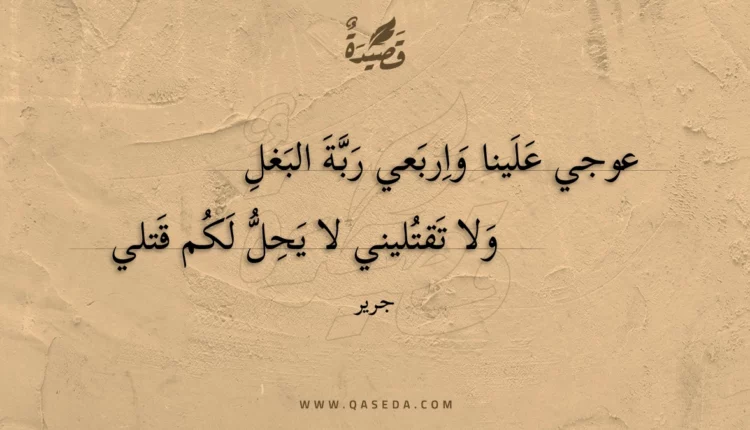 قَصِيدَةٌ
عوجي عَلَينا وَاِربَعي رَبَّةَ البَغلِ
وَلا تَقتُليني لا يَحِلُّ لَكُم قَتلي
جرير
WWW.QASEDA.COM